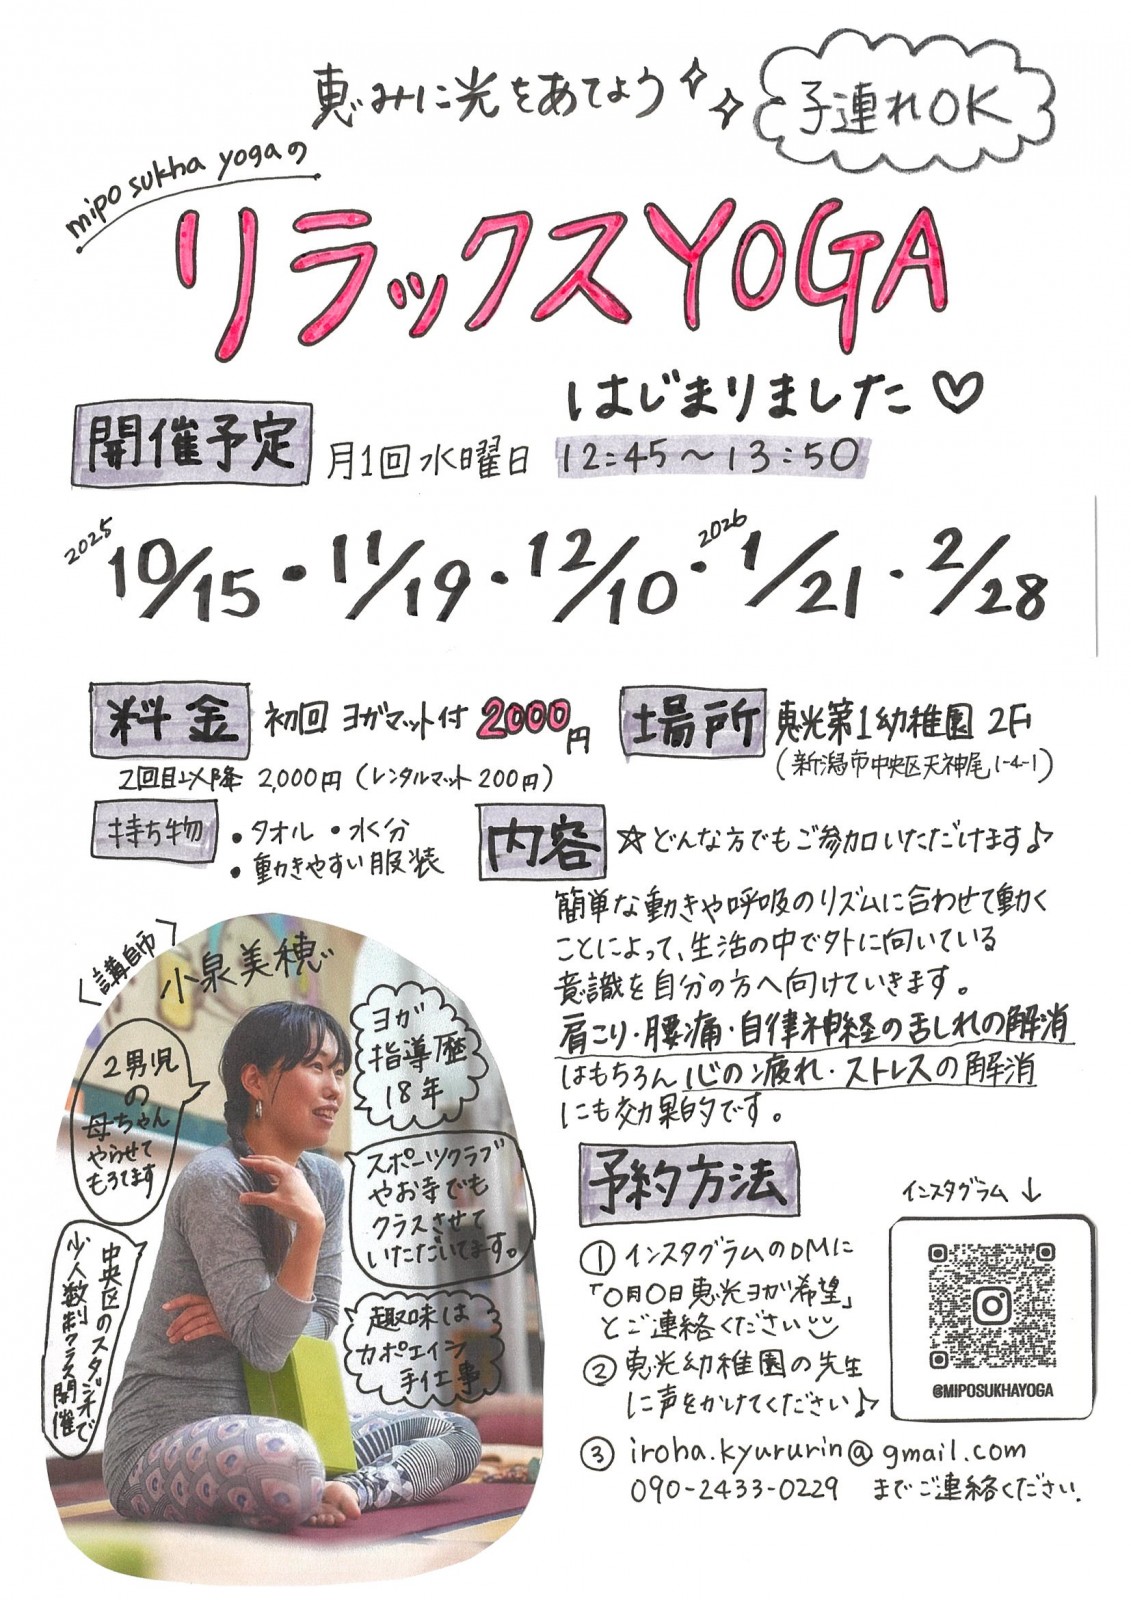 恵みに光をあてよう
子連れOK
mipo sukha yogaの
リラックスYOGA
はじまりました♡
開催予定
月1回水曜日 12:45〜13:50
2025 10/15・11/19・12/10・2026 1/21・2/28
料金
初回 ヨガマット付 2000円
2回目以降 2,000円(レンタルマット200円)
場所
恵光第1幼稚園 2F
(新潟市中央区天神尾1-4-1)
持ち物
・タオル ・水分
・動きやすい服装
内容
☆どんな方でもご参加いただけます♪
簡単な動きや呼吸のリズムに合わせて動く
ことによって、生活の中で外に向いている
意識を自分の方へ向けていきます。
肩こり・腰痛・自律神経の乱れの解消
はもちろん心の疲れ・ストレスの解消
にも効果的です。
〈講師〉
小泉美穂
ヨガ
指導歴
18年
2男児
の
母ちゃん
やらせて
もろてます
スポーツクラブ
やお寺でも
クラスさせて
いただいてます。
中央区のスタジオで
少人数制クラス開催
趣味は
カポエイラ
手仕事
予約方法
①インスタグラムのDMに
「〇月〇日恵光ヨガ希望」
とご連絡ください
②恵光幼稚園の先生
に声をかけてください♪
③iroha.kyururin@gmail.com
090-2433-0229 までご連絡ください.
インスタグラム↓
@MIPOSUKHAYOGA